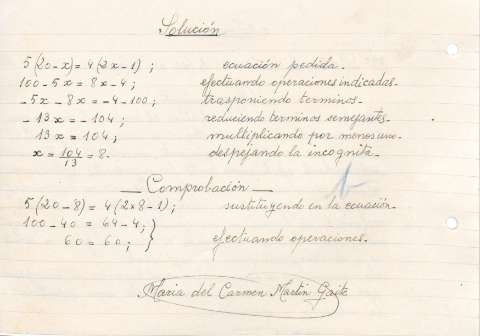 Solución
5(20-x)=4(2x-1); ecuación pedida.
100-5x=8x-4; efectuando operaciones indicadas.
-5x-8x=-4-100; trasponiendo terminos.
-13x=-104; reduciendo terminos semejantes.
13x=104; multiplicando por menos uno.
x=104/13=8. despejando la incognita.
Comprobación
5(20-8)=4(2×8-1); sustituyendo en la ecuación.
100-40=64-4;
60=60; efectuando operaciones.
Maria del Carmen Martin Gaite